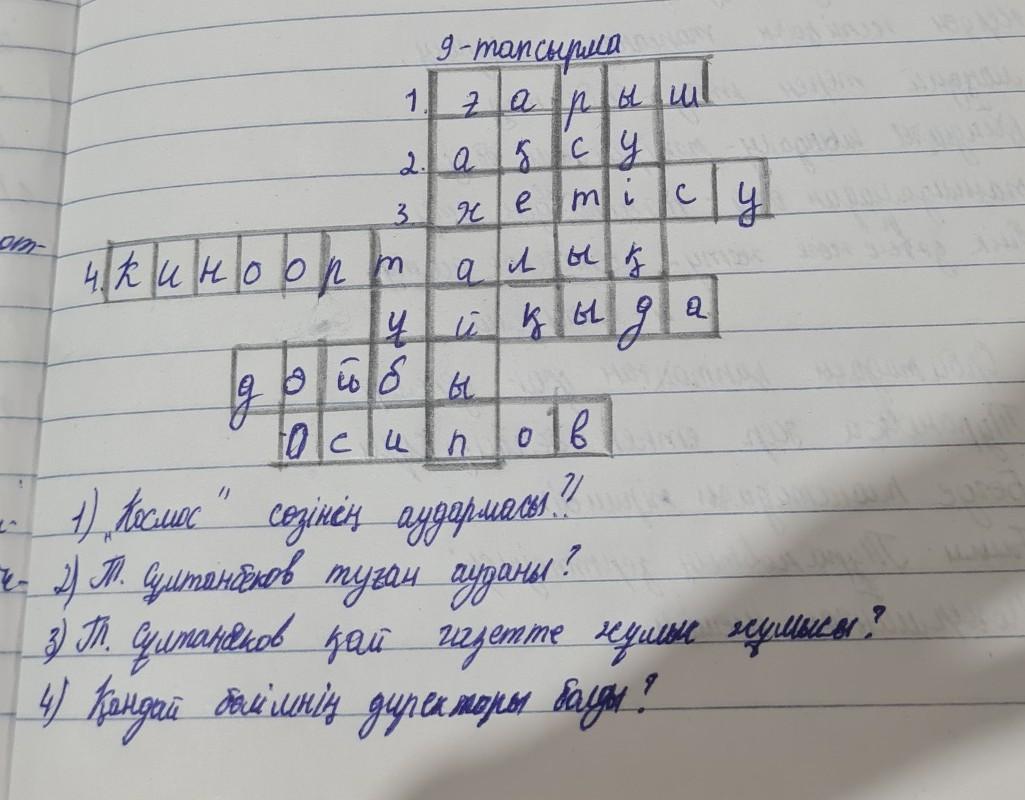 9-тапсырма
1. ғ а р ы ш
2. а қ с у
3. ж е т і с у
4. К и н о о р т а л ы қ
ұ й қ ы д а
д о й б ы
О с и п о в
1) „Космос" сөзінің аудармасы?
2) Т. Сұлтанбеков туған ауданы?
3) Т. Сұлтанбеков қай газетте жұмыс жұмысы?
4) Қандай бөлімнің директоры болды?